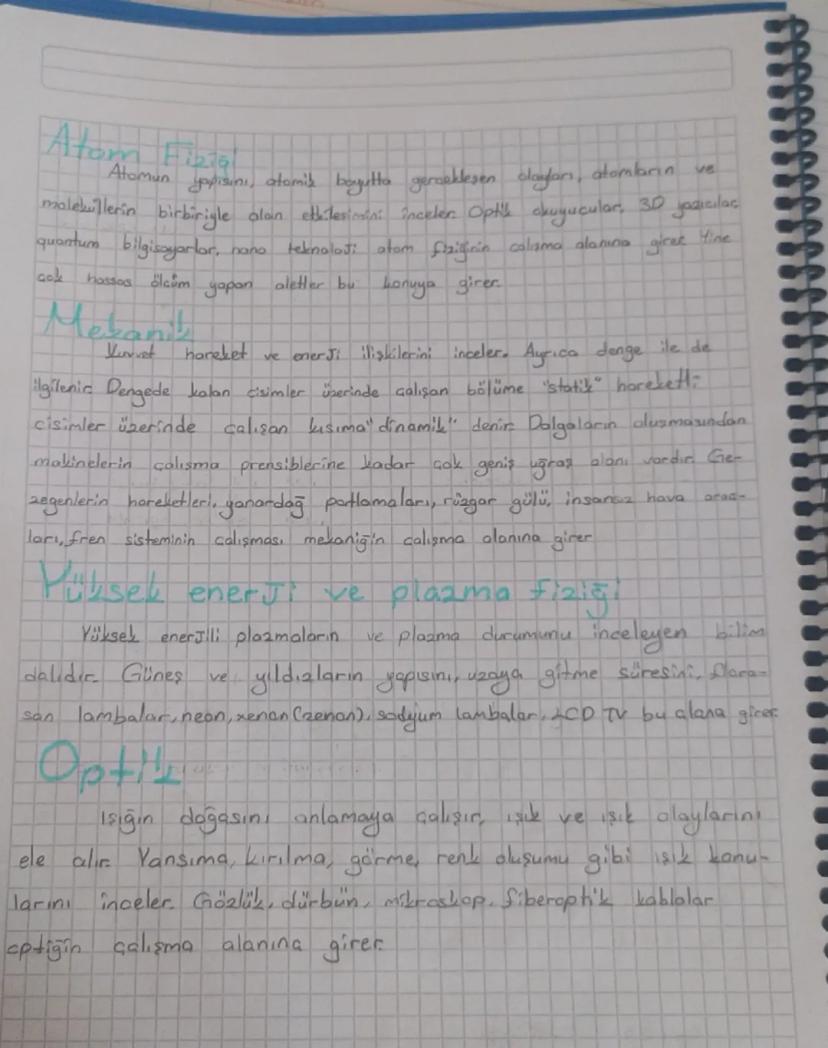 Atom Fiziği
Atomun yapısını, atomik boyutta gerçekleşen olayları, atomların ve
moleküllerin birbiriyle olan etkileşimini inceler. Optik okuyucular, 3D yazıcılar
quantum bilgisayarlar, nano teknoloji atom fiziğinin calısma alanına girer. Yine
cok hassas ölcüm yapan aletler bu konuya girer.
Mekanik
Kuvvet hareket ve enerji ilişkilerini inceler. Ayrıca denge ile de
ilgilenir. Dengede kalan cisimler üzerinde calışan bölüme "statik" hareketli
cisimler üzerinde calısan kısıma "dinamik" denir. Dalgaların olusmasından
makinelerin calısma prensiblerine kadar cok geniş uğraş alanı vardır. Ge-
zegenlerin hareketleri, yanardağ patlamaları, rüzgar gülü, insansız hava arac-
ları, fren sisteminin calışması mekaniğin calışma alanına girer
Yüksek enerji ve plazma fiziği
Yüksek enerjili plazmaların ve plazma durumunu inceleyen bilim
dalıdır. Güneş ve yıldızların yapısını, uzaya gitme süresini, flora-
san lambalar, neon, xenan (zenan), sodyum lambalar, LCD TV bu alana girer.
Optik
Işığın doğasını anlamaya çalışır, ışık ve ışık olaylarını
ele alır. Yansıma, kırılma, görme, renk oluşumu gibi ışık konu-
larını inceler. Gözlük, dürbün, mikroskop, fiberoptik kablolar
optiğin çalışma alanına girer.